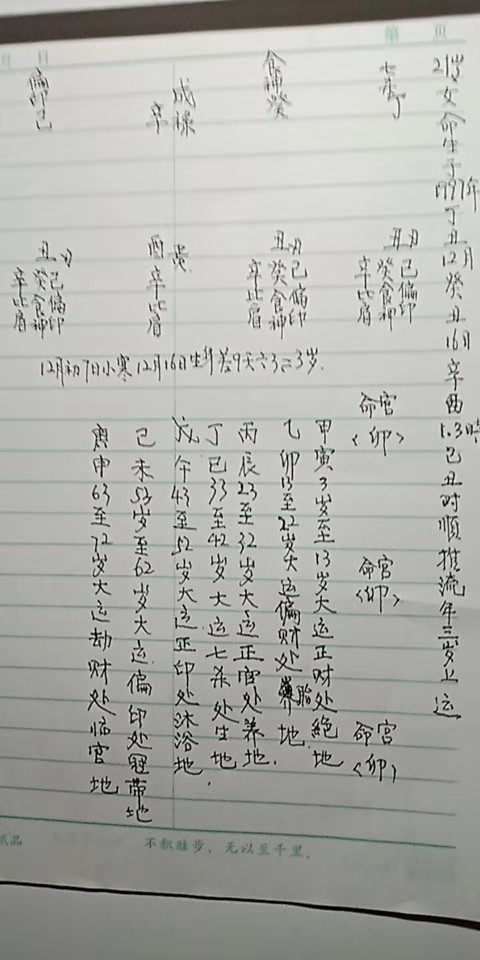 第 页
月 日
21岁女命生于1997年丁丑12月癸丑16日辛酉1.3時己丑时順推流年三岁上运
七杀丁
食神癸
戍祿
辛
偏印己
丑月
己偏印
癸食神
辛比肩
丑月
己偏印
癸食神
辛比肩
酉 贵
辛比肩
丑月
己偏印
癸食神
辛比肩
12月初7日小寒12月16日生年差9天 3=3岁.
命宫
<卯>
命宫
<卯>
命宫
<卯>
甲寅3岁至13岁大运正财处絕地
乙卯13至22岁大运偏财处胎地.
丙辰23至32岁大运正官处养地.
丁巳33至42岁大运七杀处生地.
戊午43至52岁大运正印处沐浴地
己未53岁至62岁大运偏印处冠带地
庚申63至72岁大运劫财处临官地
纸品
不积跬步，无以至千里。